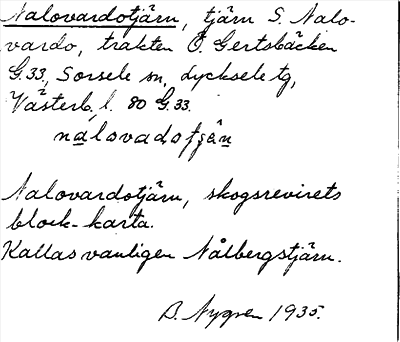 Nalovardotjärn, tjärn S. Nalo-
vardo, trakten Ö. Gertsbäcken
G.33, Sorsele sn, Lycksele tg,
Västerb. l. 80 G.33.
nalovadotjän
Nalovardotjärn, skogsrevirets
block-karta.
Kallas vanligen Nålbergstjärn.
B. Nygren 1935.